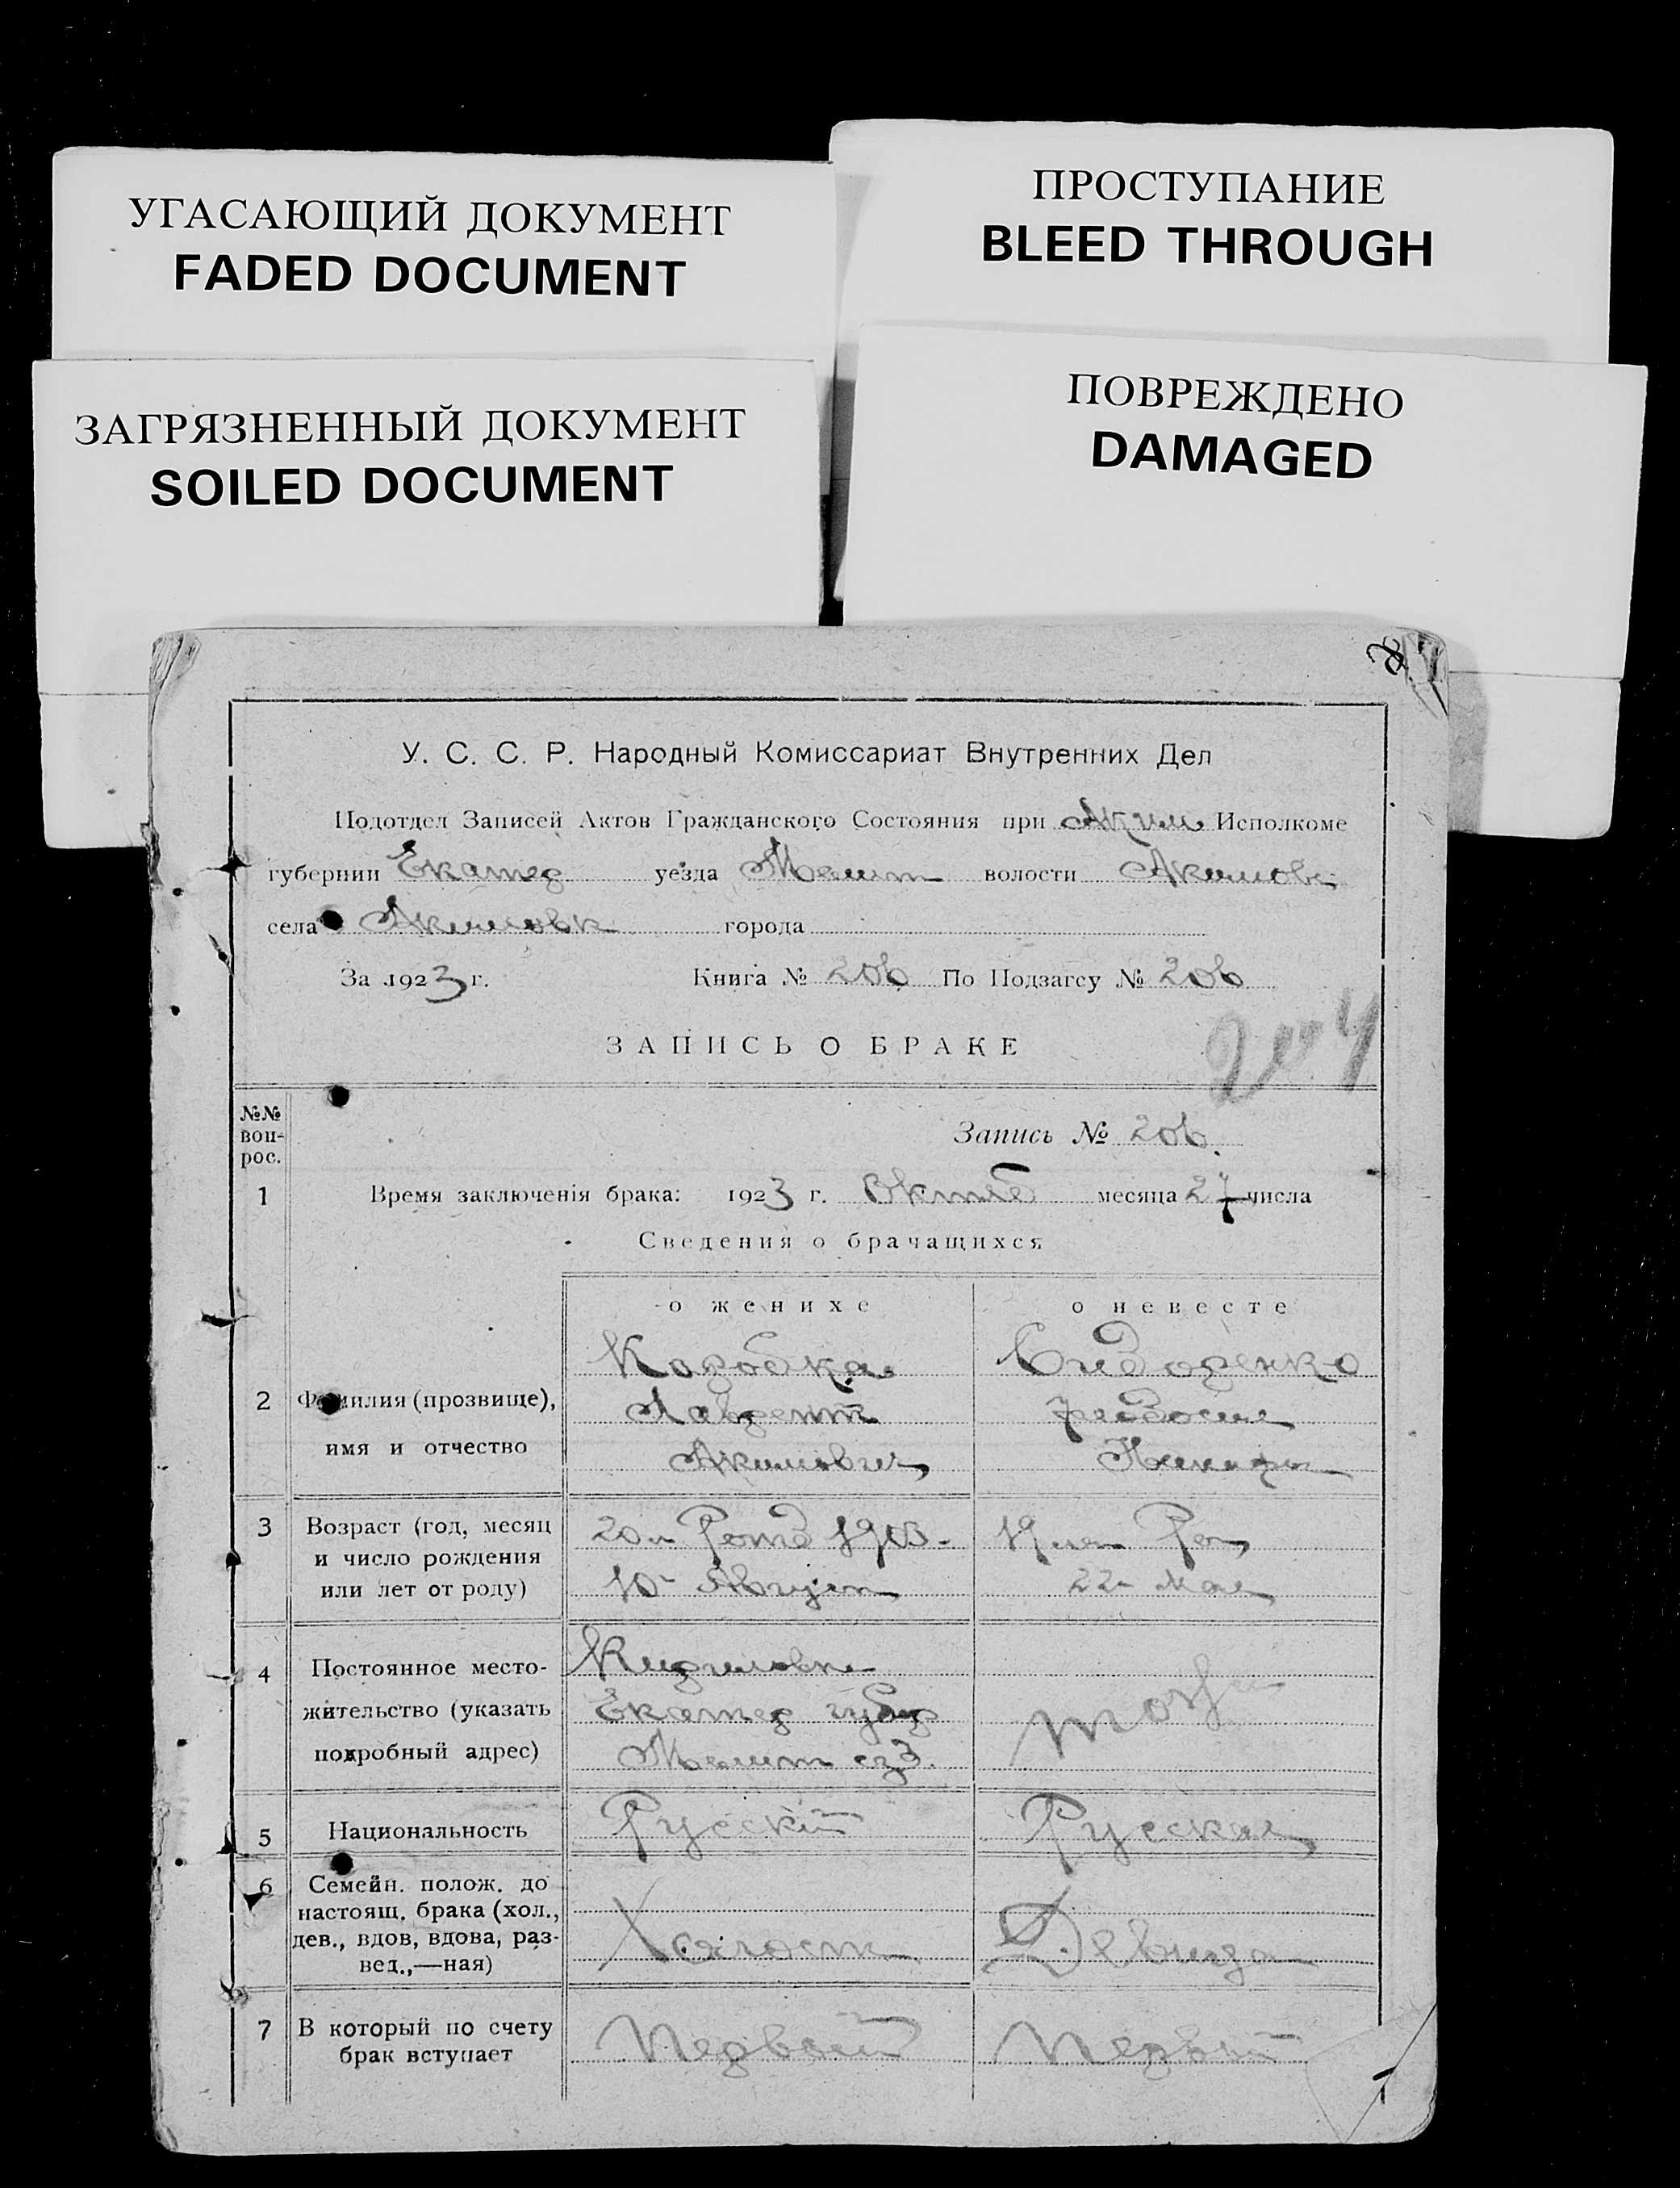 УГАСАЮЩИЙ ДОКУМЕНТ
FADED DOCUMENT
ПРОСТУПАНИЕ
BLEED THROUGH
ЗАГРЯЗНЕННЫЙ ДОКУМЕНТ
SOILED DOCUMENT
ПОВРЕЖДЕНО
DAMAGED
У. С. С. Р. Народный Комиссариат Внутренних Дел
Подотдел Записей Актов Гражданского Состояния при Исполкоме
губернии Екатер уезда Мелит волости Акимовс
села Акимовк города
За 1923 г. Книга № 206 По Подзагсу № 206
ЗАПИСЬ О БРАКЕ
№№
воп-
рос.
Запись № 206.
1 Время заключенія брака: 1923 г. Октяб месяца 27 числа
Сведения о брачащихся
о женихе о невесте
Коробка Сидоренко
2 Фамилия (прозвище), Лаврентй Феодосия
имя и отчество Акимович
3 Возраст (год, месяц 20 л Рожд 1903 19 лет
и число рождения 10 Август 22 Мая
или лет от роду)
4 Постоянное место- Кириловка
жительство (указать Екатер губер
подробный адрес) Мелит уезд.
5 Национальность Русский Русская
6 Семейн. полож. до
настоящ. брака (хол.,
дев., вдов, вдова, раз- Холост Девица
вед.,—ная)
7 В который по счету Первый Первый
брак вступает